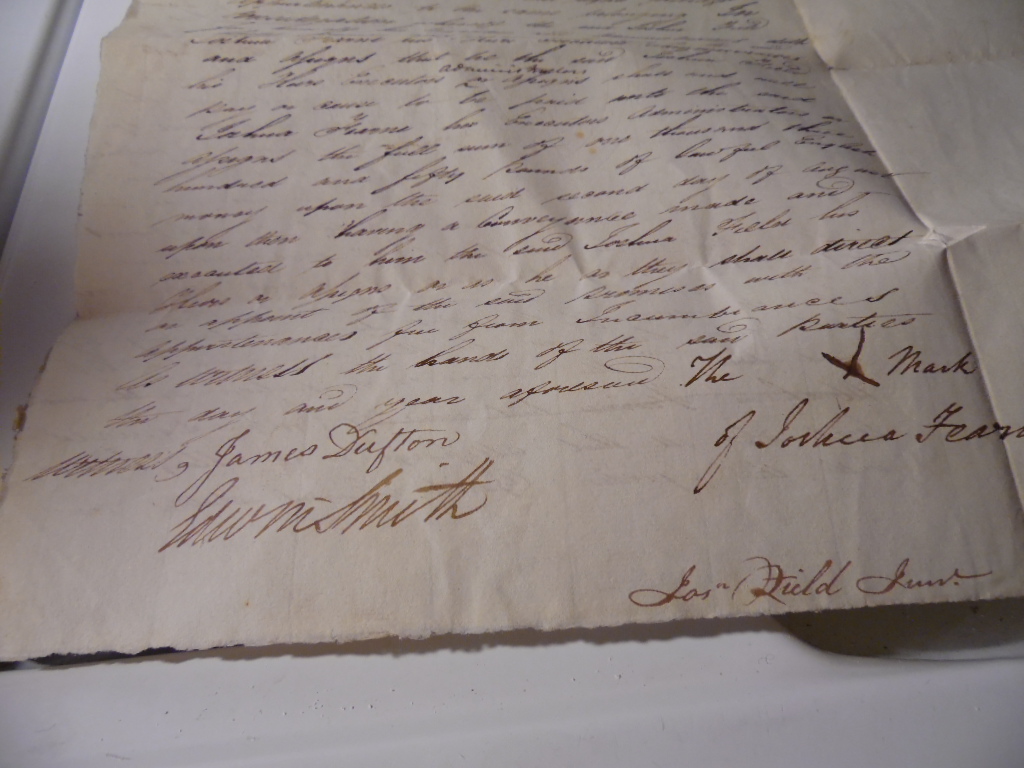 and assigns that he the said Joshua Field
his Heirs Executors administrators or assigns shall and will
pay or cause to be paid unto the said
Joshua Fearne his Executors Administrators or
assigns the full sum of one thousand three
hundred and fifty Pounds of lawful English
money upon the said second day of August
upon then having a Conveyance made and
executed to him the said Joshua Field his
Heirs or assigns or as he or they shall direct
or appoint of the said premises with the
appurtenances free from Incumbrances
As witness the hands of the said parties
the day and year aforesaid The X Mark
of Joshua Fearn
witness, James Dufton
Edwin Smith
Josa Field Junr